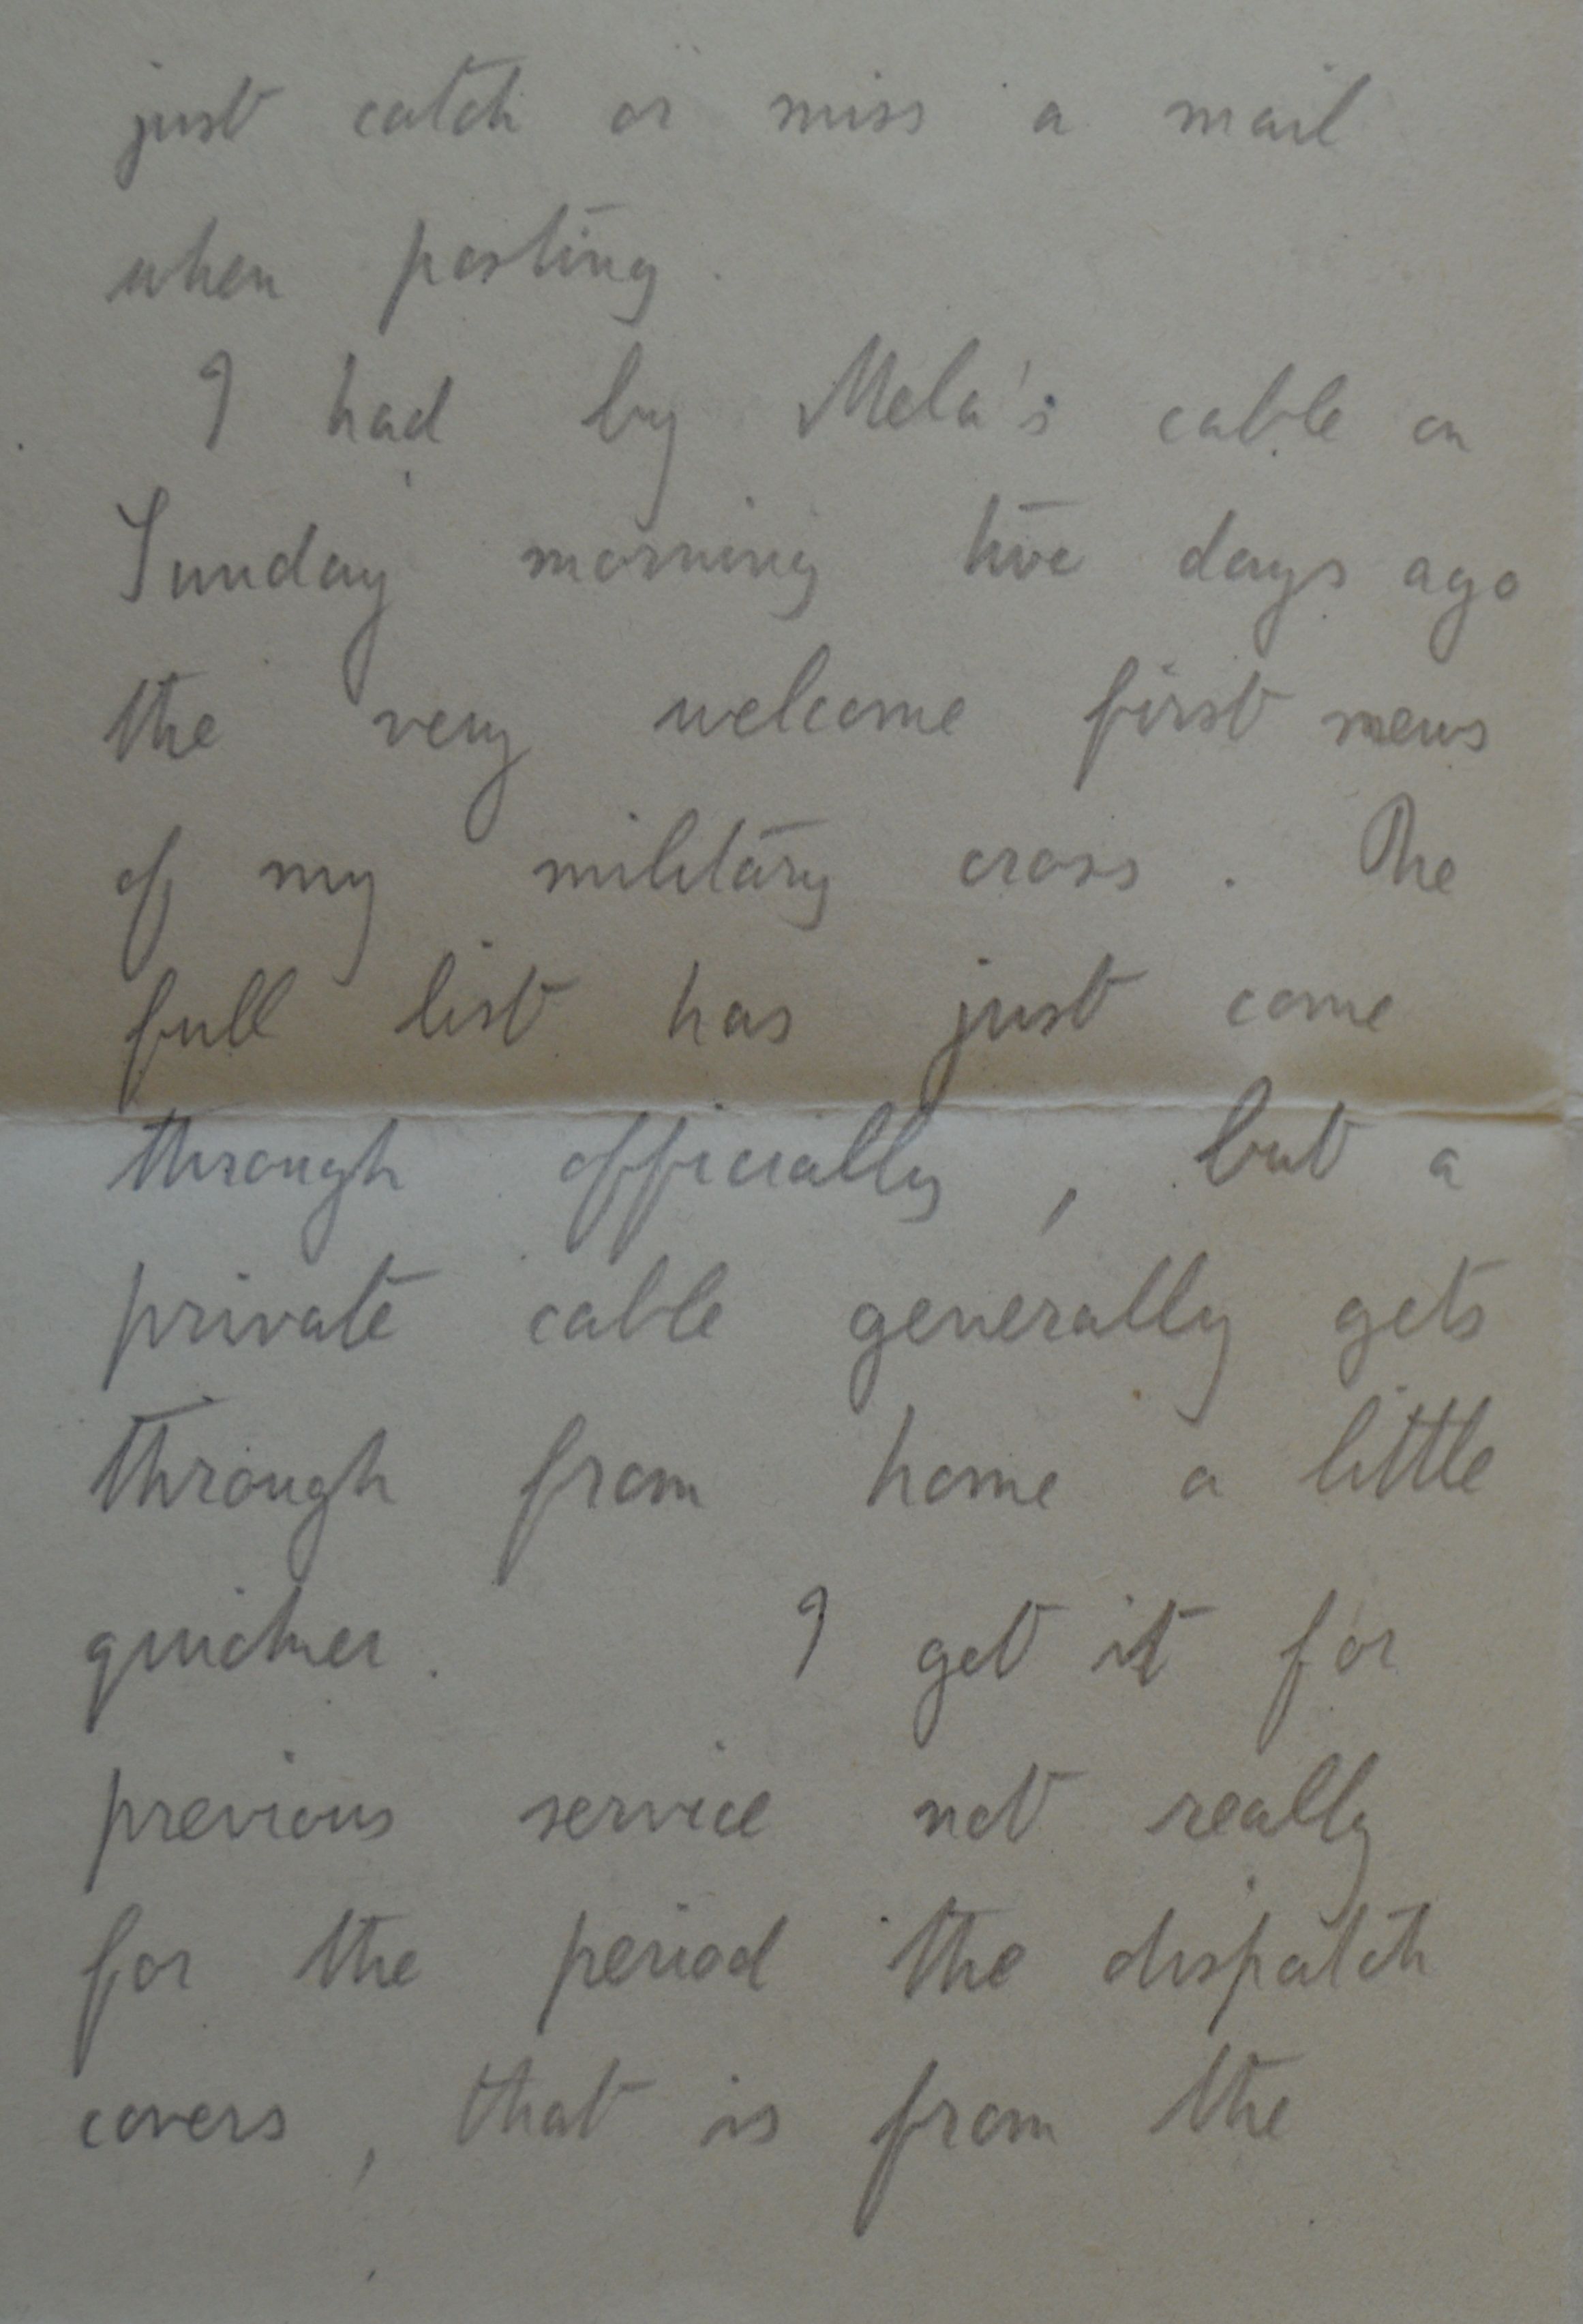 just catch or miss a mail
when posting.
I had by Mela's cable on
Sunday morning two days ago
the very welcome first news
of my military cross. The
full list has just come
through officially, but a
private cable generally gets
through from home a little
quicker. I get it for
previous service not really
for the period the dispatch
covers, that is from the